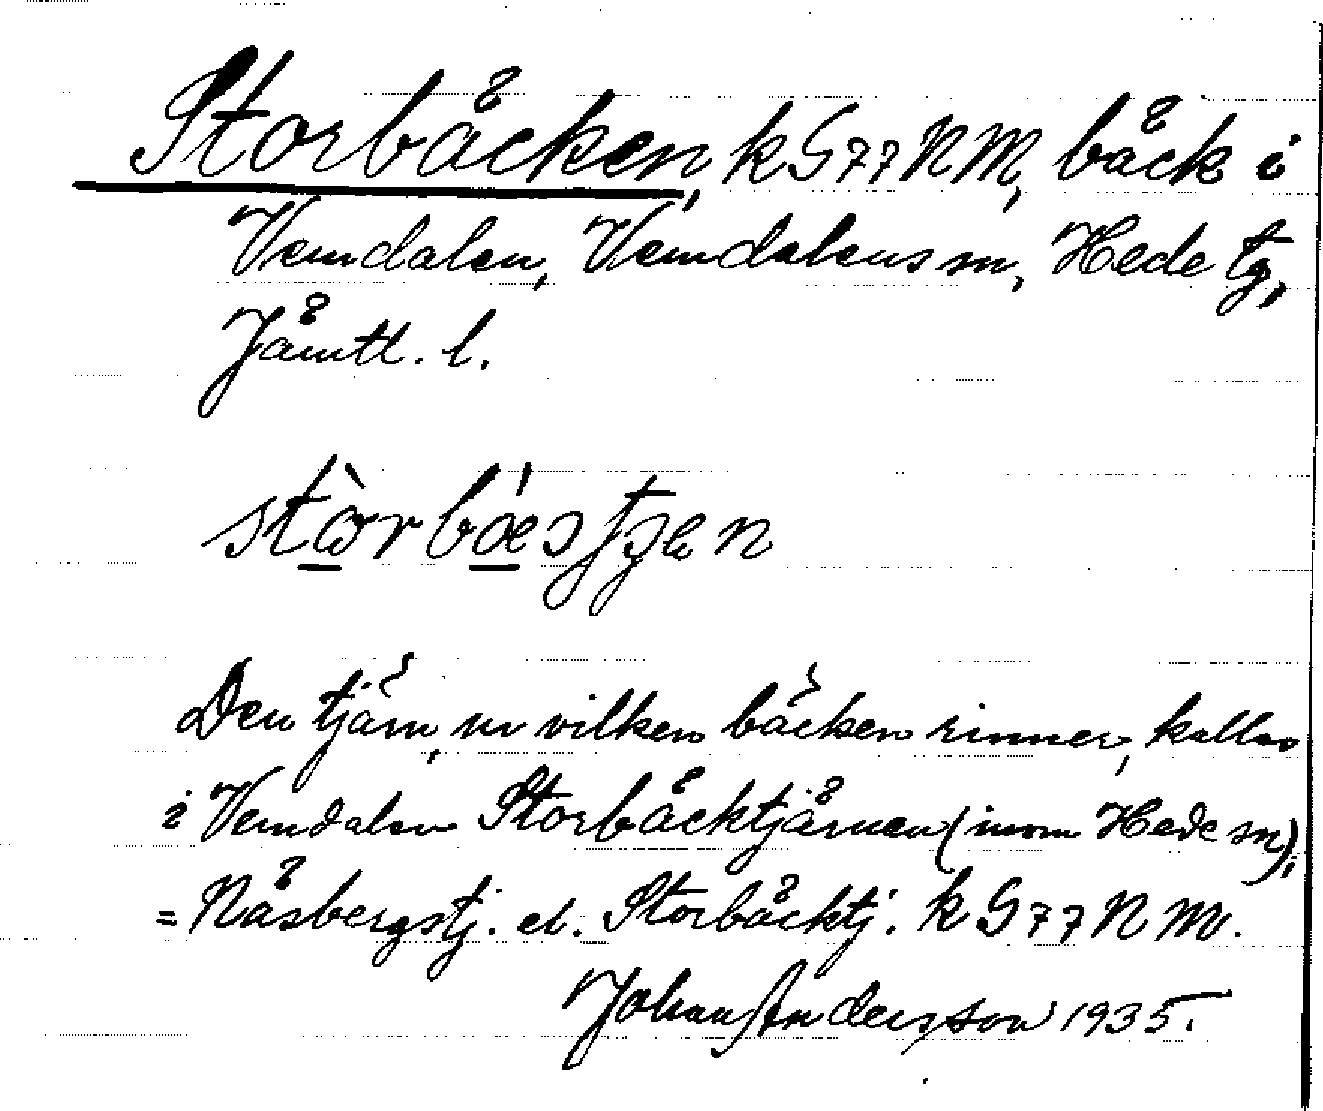 Storbäcken, k G77NM, bäck i
Vemdalen, Vemdalens sn, Hede tg,
Jämtl. l.
Den tjärn, ur vilken bäcken rinner, kallas
i Vemdalen Storbäcktjärnen (inom Hede sn),
= Näsbergstj. el. Storbäcktj. k G77NM.
Johan Andersson 1935.